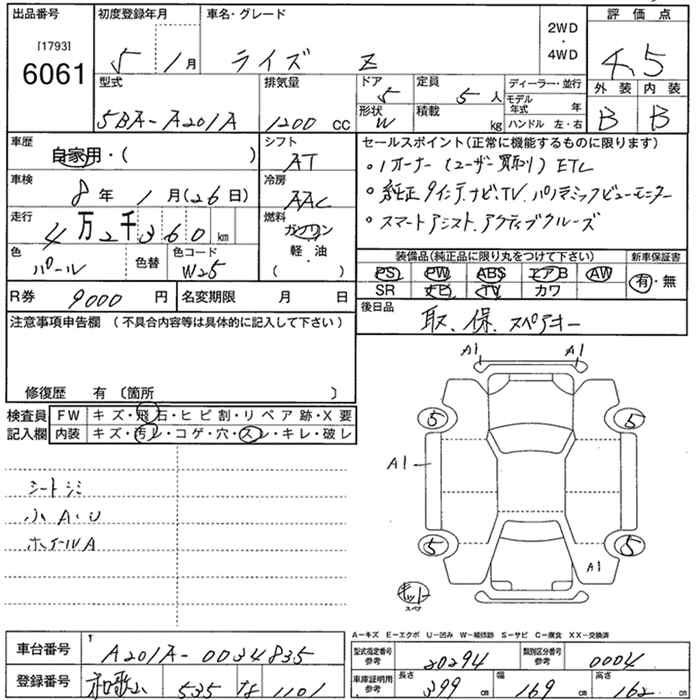 出品番号 初度登録年月 車名・グレード 2WD ・ 4WD 評価点
[1793] 6061 5 1月 ライズ Z 4.5
外装 内装
B B
型式 排気量 ドア 定員 ディーラー・並行
5BA-A201A 1200 cc 5 5人
形状 積載 モデル年式 年
W kg ハンドル 左・右
車歴 自家用・( )
シフト AT
車検 8年1月(26日)
冷房 AAC
走行 4万2千360km
燃料 ガソリン 軽・油 ( )
色 パール 色替 色コード W25
セールスポイント(正常に機能するものに限ります)
・1オーナー(ユーザー買取り) ETC
・純正9インチナビ,TV.パノラミックビューモニター
・スマートアシスト.アクティブクルーズ
装備品(純正品に限り丸をつけて下さい) 新車保証書
PS PW ABS エアB AW 有・無
SR ナビ TV カワ
R券 9000円 名変期限 月 日
後日品 取.保.スペアキー
注意事項申告欄(不具合内容等は具体的に記入して下さい)
修復歴 有〔箇所 〕
検査員記入欄
FW キズ・飛石・ヒビ割・リペア跡・X要
内装 キズ・汚レ・コゲ・穴・スレ・キレ・破レ
シートシミ
小A・U
ホイールA
A1 A1
5 5
A1
5 5
A1
キット
スペア
A-キズ E-エクボ U-凹み W-補修跡 S-サビ C-腐食 XX-交換済
車台番号 A201A-0034835
登録番号 和歌山 535 な 1101
型式指定番号 参考 20294 類別区分番号 参考 0004
車庫証明用 参考 長さ 399cm 幅 169cm 高さ 162cm